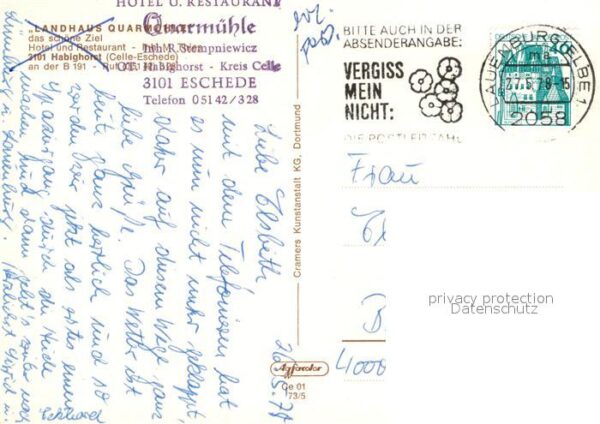 HOTEL U. RESTAURANT
Quarmühle
Inh. R. Stempniewicz
OT. Habighorst - Kreis Celle
3101 ESCHEDE
Telefon 05142/328
„LANDHAUS QUARMÜHLE"
das schöne Ziel
Hotel und Restaurant - Inh. M.
3101 Habighorst (Celle-Eschede)
an der B 191 - Ruf
BITTE AUCH IN DER
ABSENDERANGABE:
VERGISS
MEIN
NICHT:
DIE POSTLEITZAHL
LAUENBURG, ELBE 1
2058
26.5.78
Liebe Elsbeth
mit dem Telefonieren hat
es nun nicht mehr geklappt,
daher auf diesem Wege ganz
liebe Grüße. Das Wetter ist
heute ganz herrlich und so
werden wir jetzt als erstes einen
Spaziergang durch die Heide
machen und dann geht's weiter nach
Lauenburg.
Eckhard
Frau
4000
Cramers Kunstanstalt KG, Dortmund
Agfacolor
Ce 01
73/5
privacy protection
Datenschutz